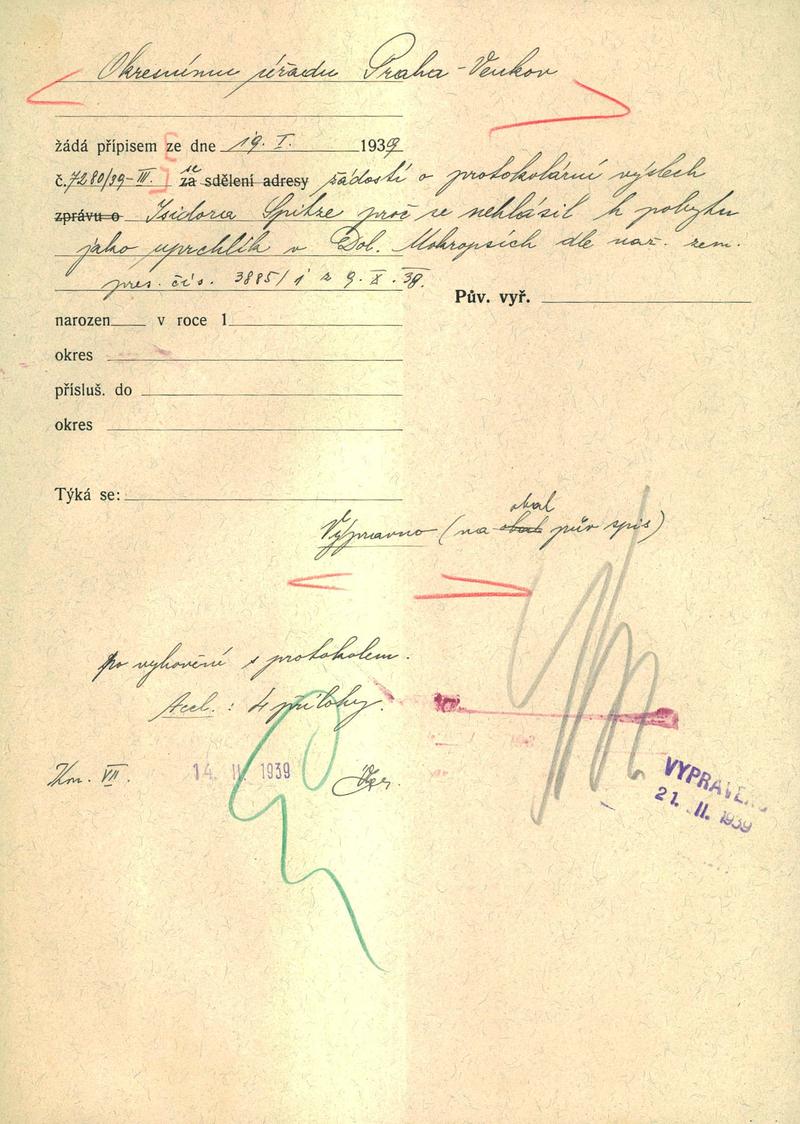 Okresnímu úřadu Praha-Venkov
žádá přípisem ze dne 19. I. 1939
č. 7280/39-III. se za sdělení adresy žádostí o protokolární výslech
zprávu o Isidora Spitze proč se nehlásil k pobytu
jako uprchlík v Dol. Mokropsích dle nař. zem.
pres. čís. 3885/1 z 9. X. 38.
Pův. vyř.
narozen v roce 1
okres
přísluš. do
okres
Týká se:
obal
Výpravno (na obal pův spis)
po vyhovění s protokolem.
Accl.: 4 přílohy.
VII. 14. II. 1939
VYPRAVENO
21. II. 1939